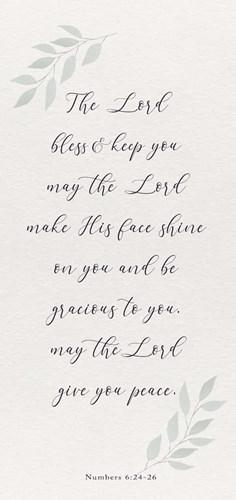 The Lord
bless & keep you
may the Lord
make His face shine
on you and be
gracious to you.
may the Lord
give you peace.
Numbers 6:24-26